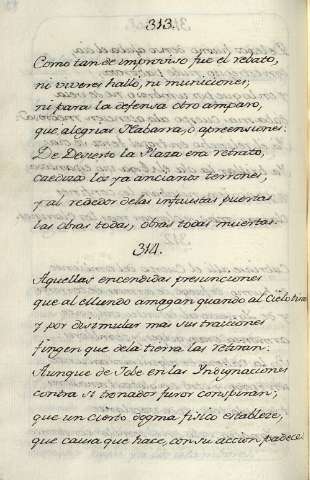 313.
Como tan de improviso fue el rebato,
ni viveres hallo, ni municiones;
ni para la defensa otro amparo,
que alegrias Nabarra, ò apreensiones.
De Desierto la Plaza era retrato,
caedizo los ya ancianos terrones;
y al rededor de las infaustas puertas
las obras todas, obras todas muertas.
314.
Aquellas encendidas presunciones
que al Mundo amagan quando al Cielo tiran
y por disimular mas sus traiciones
fingen que de la tierra las retiran.
Aunque de Jobe en las Indignaciones
contra si tronador furor conspiran;
que un cierto dogma fisico estableze,
que causa que haze, con su acción padece.